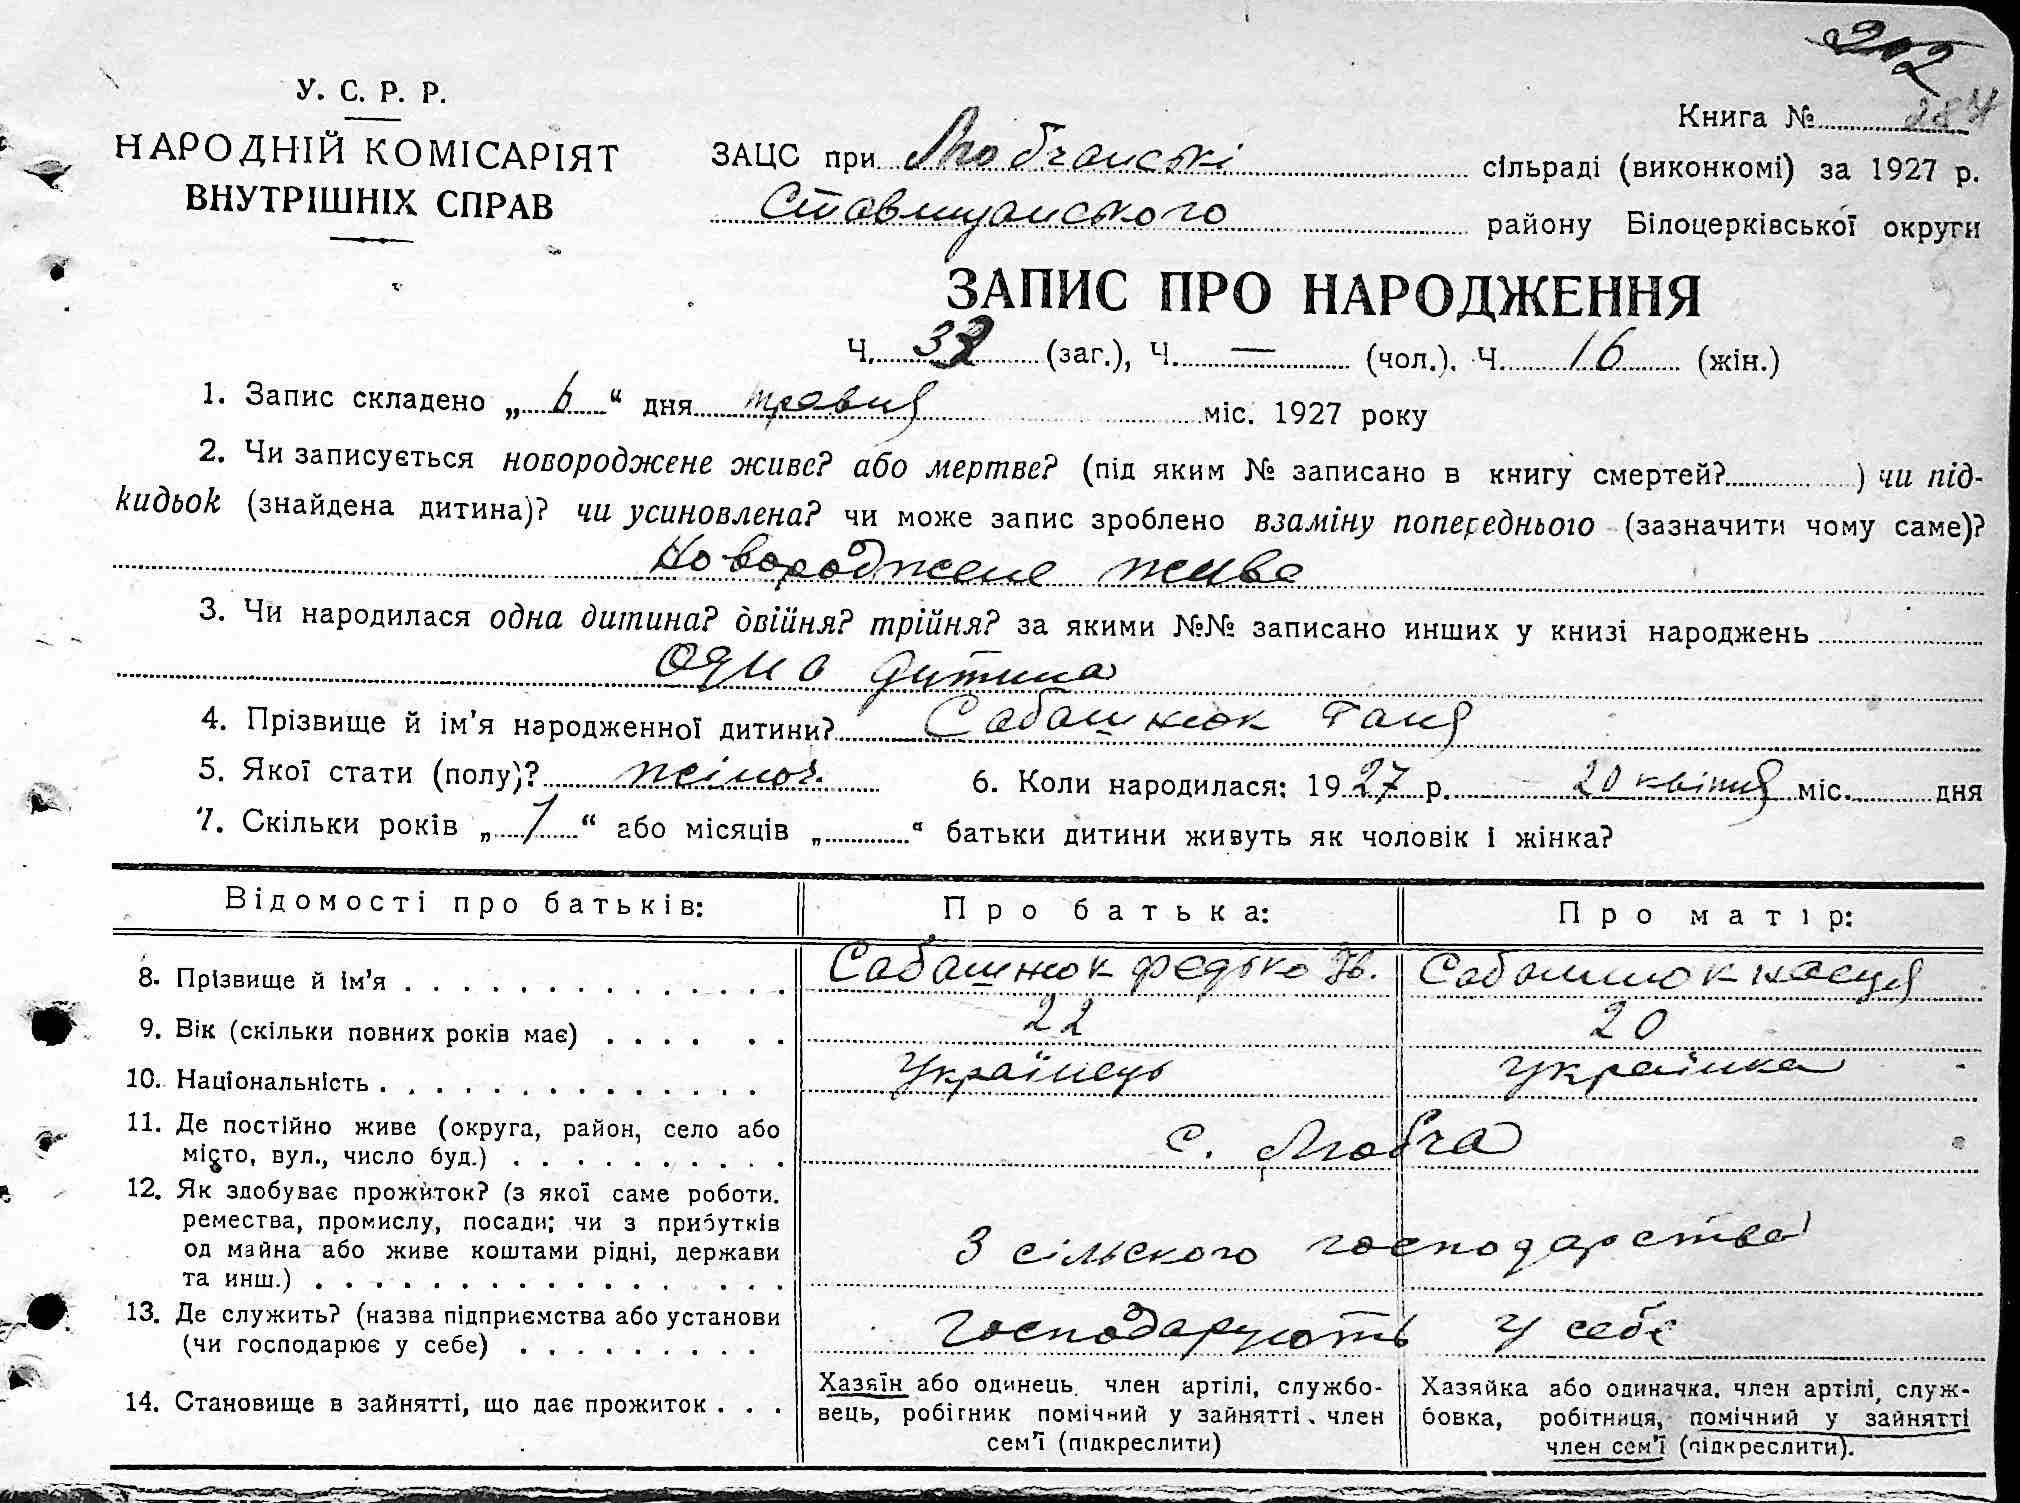 202
284
У. С. Р. Р.
НАРОДНІЙ КОМІСАРІЯТ
ВНУТРІШНІХ СПРАВ
Книга №
ЗАЦС при Любчанські сільраді (виконкомі) за 1927 р.
Ставищанського району Білоцерківської округи
ЗАПИС ПРО НАРОДЖЕННЯ
Ч. 32 (заг.), Ч. — (чол.). Ч. 16 (жін.)
1. Запис складено „ 6 “ дня травня міс. 1927 року
2. Чи записується новороджене живе? або мертве? (під яким № записано в книгу смертей? ) чи під-
кидьок (знайдена дитина)? чи усиновлена? чи може запис зроблено взаміну попереднього (зазначити чому саме)?
Новороджене живе
3. Чи народилася одна дитина? двійня? трійня? за якими №№ записано инших у книзі народжень
Одна дитина
4. Прізвище й ім'я народженної дитини? Сабашнюк Ганя
5. Якої стати (полу)? жіноч. 6. Коли народилася: 1927 р. 20 квітня міс. дня
7. Скільки років „ 1 “ або місяців „ “ батьки дитини живуть як чоловік і жінка?
Відомості про батьків: Про батька: Про матір:
8. Прізвище й ім'я Сабашнюк Федько Ів. Сабашнюк Насця
9. Вік (скільки повних років має) 22 20
10. Національність Українець Українка
11. Де постійно живе (округа, район, село або
місто, вул., число буд.) с. Любча
12. Як здобуває прожиток? (з якої саме роботи.
ремества, промислу, посади; чи з прибутків
од майна або живе коштами рідні, держави
та инш.) З сільского господарства
13. Де служить? (назва підприємства або установи
(чи господарює у себе) Господарують у себе
14. Становище в зайнятті, що дає прожиток
Хазяїн або одинець. член артілі, службо-
вець, робітник помічний у зайнятті, член
сем'ї (підкреслити)
Хазяйка або одиначка. член артілі, служ-
бовка, робітниця, помічний у зайнятті
член сем'ї (підкреслити).